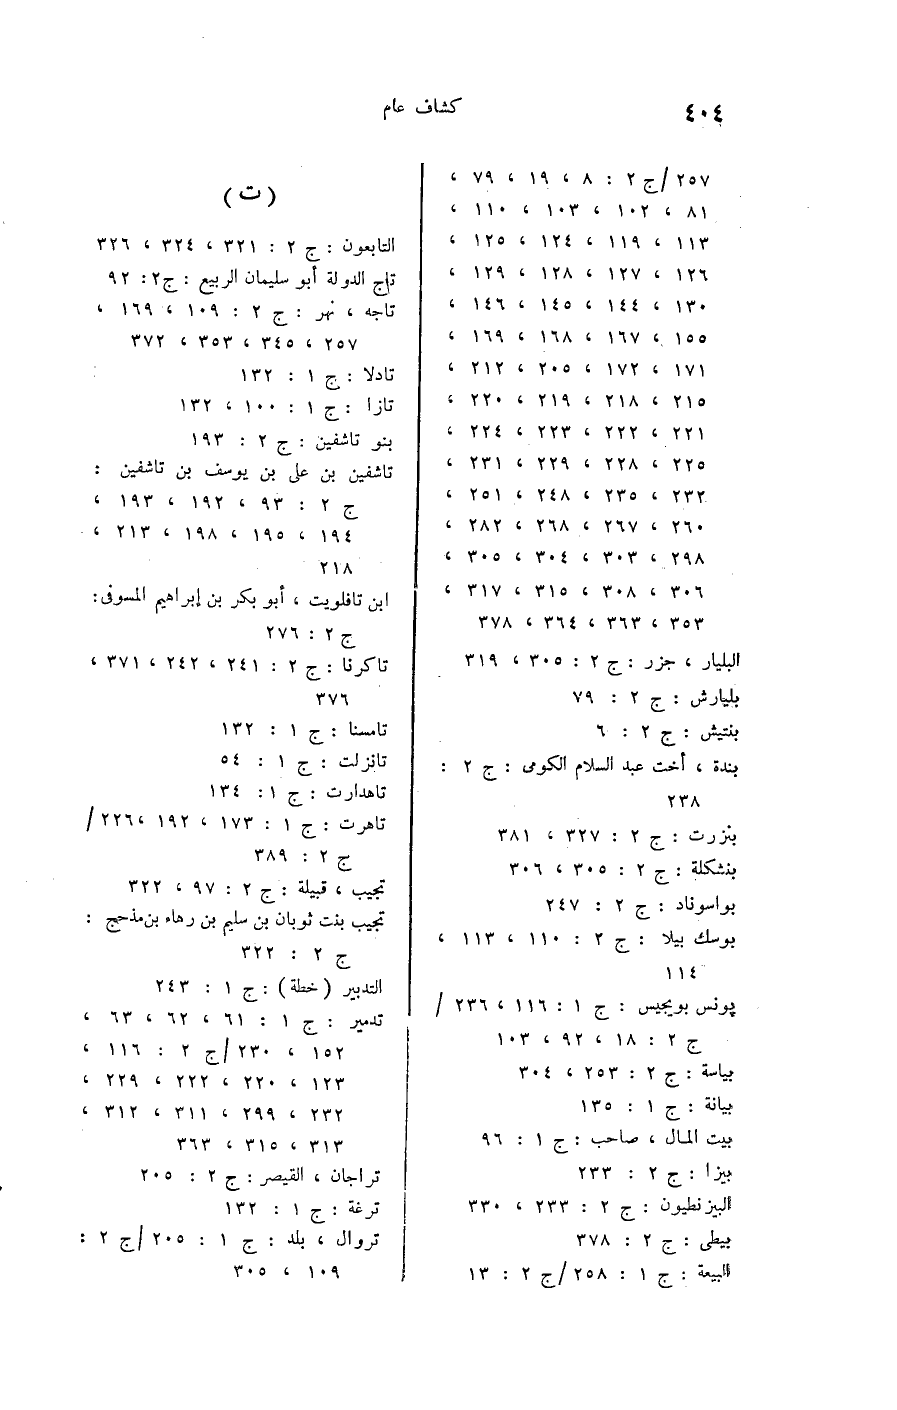 ٤٠٤
كشاف عام
٢٥٧ / ج ٢ : ٨ ، ١٩ ، ٧٩ ،
٨١ ، ١٠٢ ، ١٠٣ ، ١١٠ ،
١١٣ ، ١١٩ ، ١٢٤ ، ١٢٥ ،
١٢٦ ، ١٢٧ ، ١٢٨ ، ١٢٩ ،
١٣٠ ، ١٤٤ ، ١٤٥ ، ١٤٦ ،
١٥٥ ، ١٦٧ ، ١٦٨ ، ١٦٩ ،
١٧١ ، ١٧٢ ، ٢٠٥ ، ٢١٢ ،
٢١٥ ، ٢١٨ ، ٢١٩ ، ٢٢٠ ،
٢٢١ ، ٢٢٢ ، ٢٢٣ ، ٢٢٤ ،
٢٢٥ ، ٢٢٨ ، ٢٢٩ ، ٢٣١ ،
٢٣٢ ، ٢٣٥ ، ٢٤٨ ، ٢٥١ ،
٢٦٠ ، ٢٦٧ ، ٢٦٨ ، ٢٨٢ ،
٢٩٨ ، ٣٠٣ ، ٣٠٤ ، ٣٠٥ ،
٣٠٦ ، ٣٠٨ ، ٣١٥ ، ٣١٧ ،
٣٥٣ ، ٣٦٣ ، ٣٦٤ ، ٣٧٨
البليار ، جزر : ج ٢ : ٣٠٥ ، ٣١٩
بليارش : ج ٢ : ٧٩
بنتيش : ج ٢ : ٦
بندة ، أخت عبد السلام الكومى : ج ٢ :
٢٣٨
بنزرت : ج ٢ : ٣٢٧ ، ٣٨١
بنشكلة : ج ٢ : ٣٠٥ ، ٣٠٦
بواسوناد : ج ٢ : ٢٤٧
بوسك بيلا : ج ٢ : ١١٠ ، ١١٣ ،
١١٤
پونس بويجيس : ج ١ : ١١٦ ، ٢٣٦ /
ج ٢ : ١٨ ، ٩٢ ، ١٠٣
بياسة : ج ٢ : ٢٥٣ ، ٣٠٤
بيانة : ج ١ : ١٣٥
بيت المال ، صاحب : ج ١ : ٩٦
بيزا : ج ٢ : ٢٣٣
البيزنطيون : ج ٢ : ٢٣٣ ، ٣٣٠
بيطى : ج ٢ : ٣٧٨
البيعة : ج ١ : ٢٥٨ / ج ٢ : ١٣
( ت )
التابعون : ج ٢ : ٣٢١ ، ٣٢٤ ، ٣٢٦
تاج الدولة أبو سليمان الربيع : ج٢ : ٩٢
تاجه ، نهر : ج ٢ : ١٠٩ ، ١٦٩ ،
٢٥٧ ، ٣٤٥ ، ٣٥٣ ، ٣٧٢
تادلا : ج ١ : ١٣٢
تازا : ج ١ : ١٠٠ ، ١٣٢
بنو تاشفين : ج ٢ : ١٩٣
تاشفين بن على بن يوسف بن تاشفين :
ج ٢ : ٩٣ ، ١٩٢ ، ١٩٣ ،
١٩٤ ، ١٩٥ ، ١٩٨ ، ٢١٣ ،
٢١٨
ابن تافلويت ، أبو بكر بن إبراهيم المسوفى :
ج ٢ : ٢٧٦
تاكرنا : ج ٢ : ٢٤١ ، ٢٤٢ ، ٣٧١ ،
٣٧٦
تامسنا : ج ١ : ١٣٢
تانزلت : ج ١ : ٥٤
تاهدارت : ج ١ : ١٣٤
تاهرت : ج ١ : ١٧٣ ، ١٩٢ ، ٢٢٦ /
ج ٢ : ٣٨٩
تجيب ، قبيلة : ج ٢ : ٩٧ ، ٣٢٢
تجيب بنت ثوبان بن سليم بن رهاء بن مذحج :
ج ٢ : ٣٢٢
التدبير ( خطة ) : ج ١ : ٢٤٣
تدمير : ج ١ : ٦١ ، ٦٢ ، ٦٣ ،
١٥٢ ، ٢٣٠ / ج ٢ : ١١٦ ،
١٢٣ ، ٢٢٠ ، ٢٢٢ ، ٢٢٩ ،
٢٣٢ ، ٢٩٩ ، ٣١١ ، ٣١٢ ،
٣١٣ ، ٣١٥ ، ٣٦٣
تراجان ، القيصر : ج ٢ : ٢٠٥
ترغة : ج ١ : ١٣٢
تروال ، بلد : ج ١ : ٢٠٥ / ج ٢ :
١٠٩ ، ٣٠٥